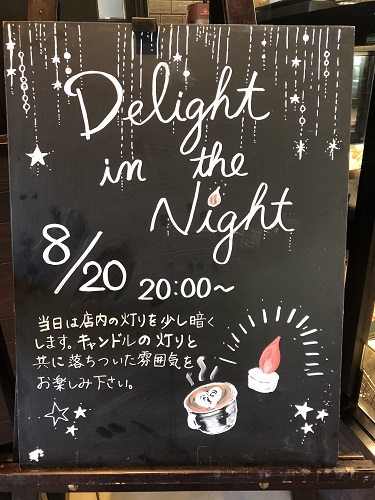 Delight
in the
Night
8/20 20:00〜
当日は店内の灯りを少し暗く
します。キャンドルの灯りと
共に落ちついた雰囲気を
お楽しみ下さい。